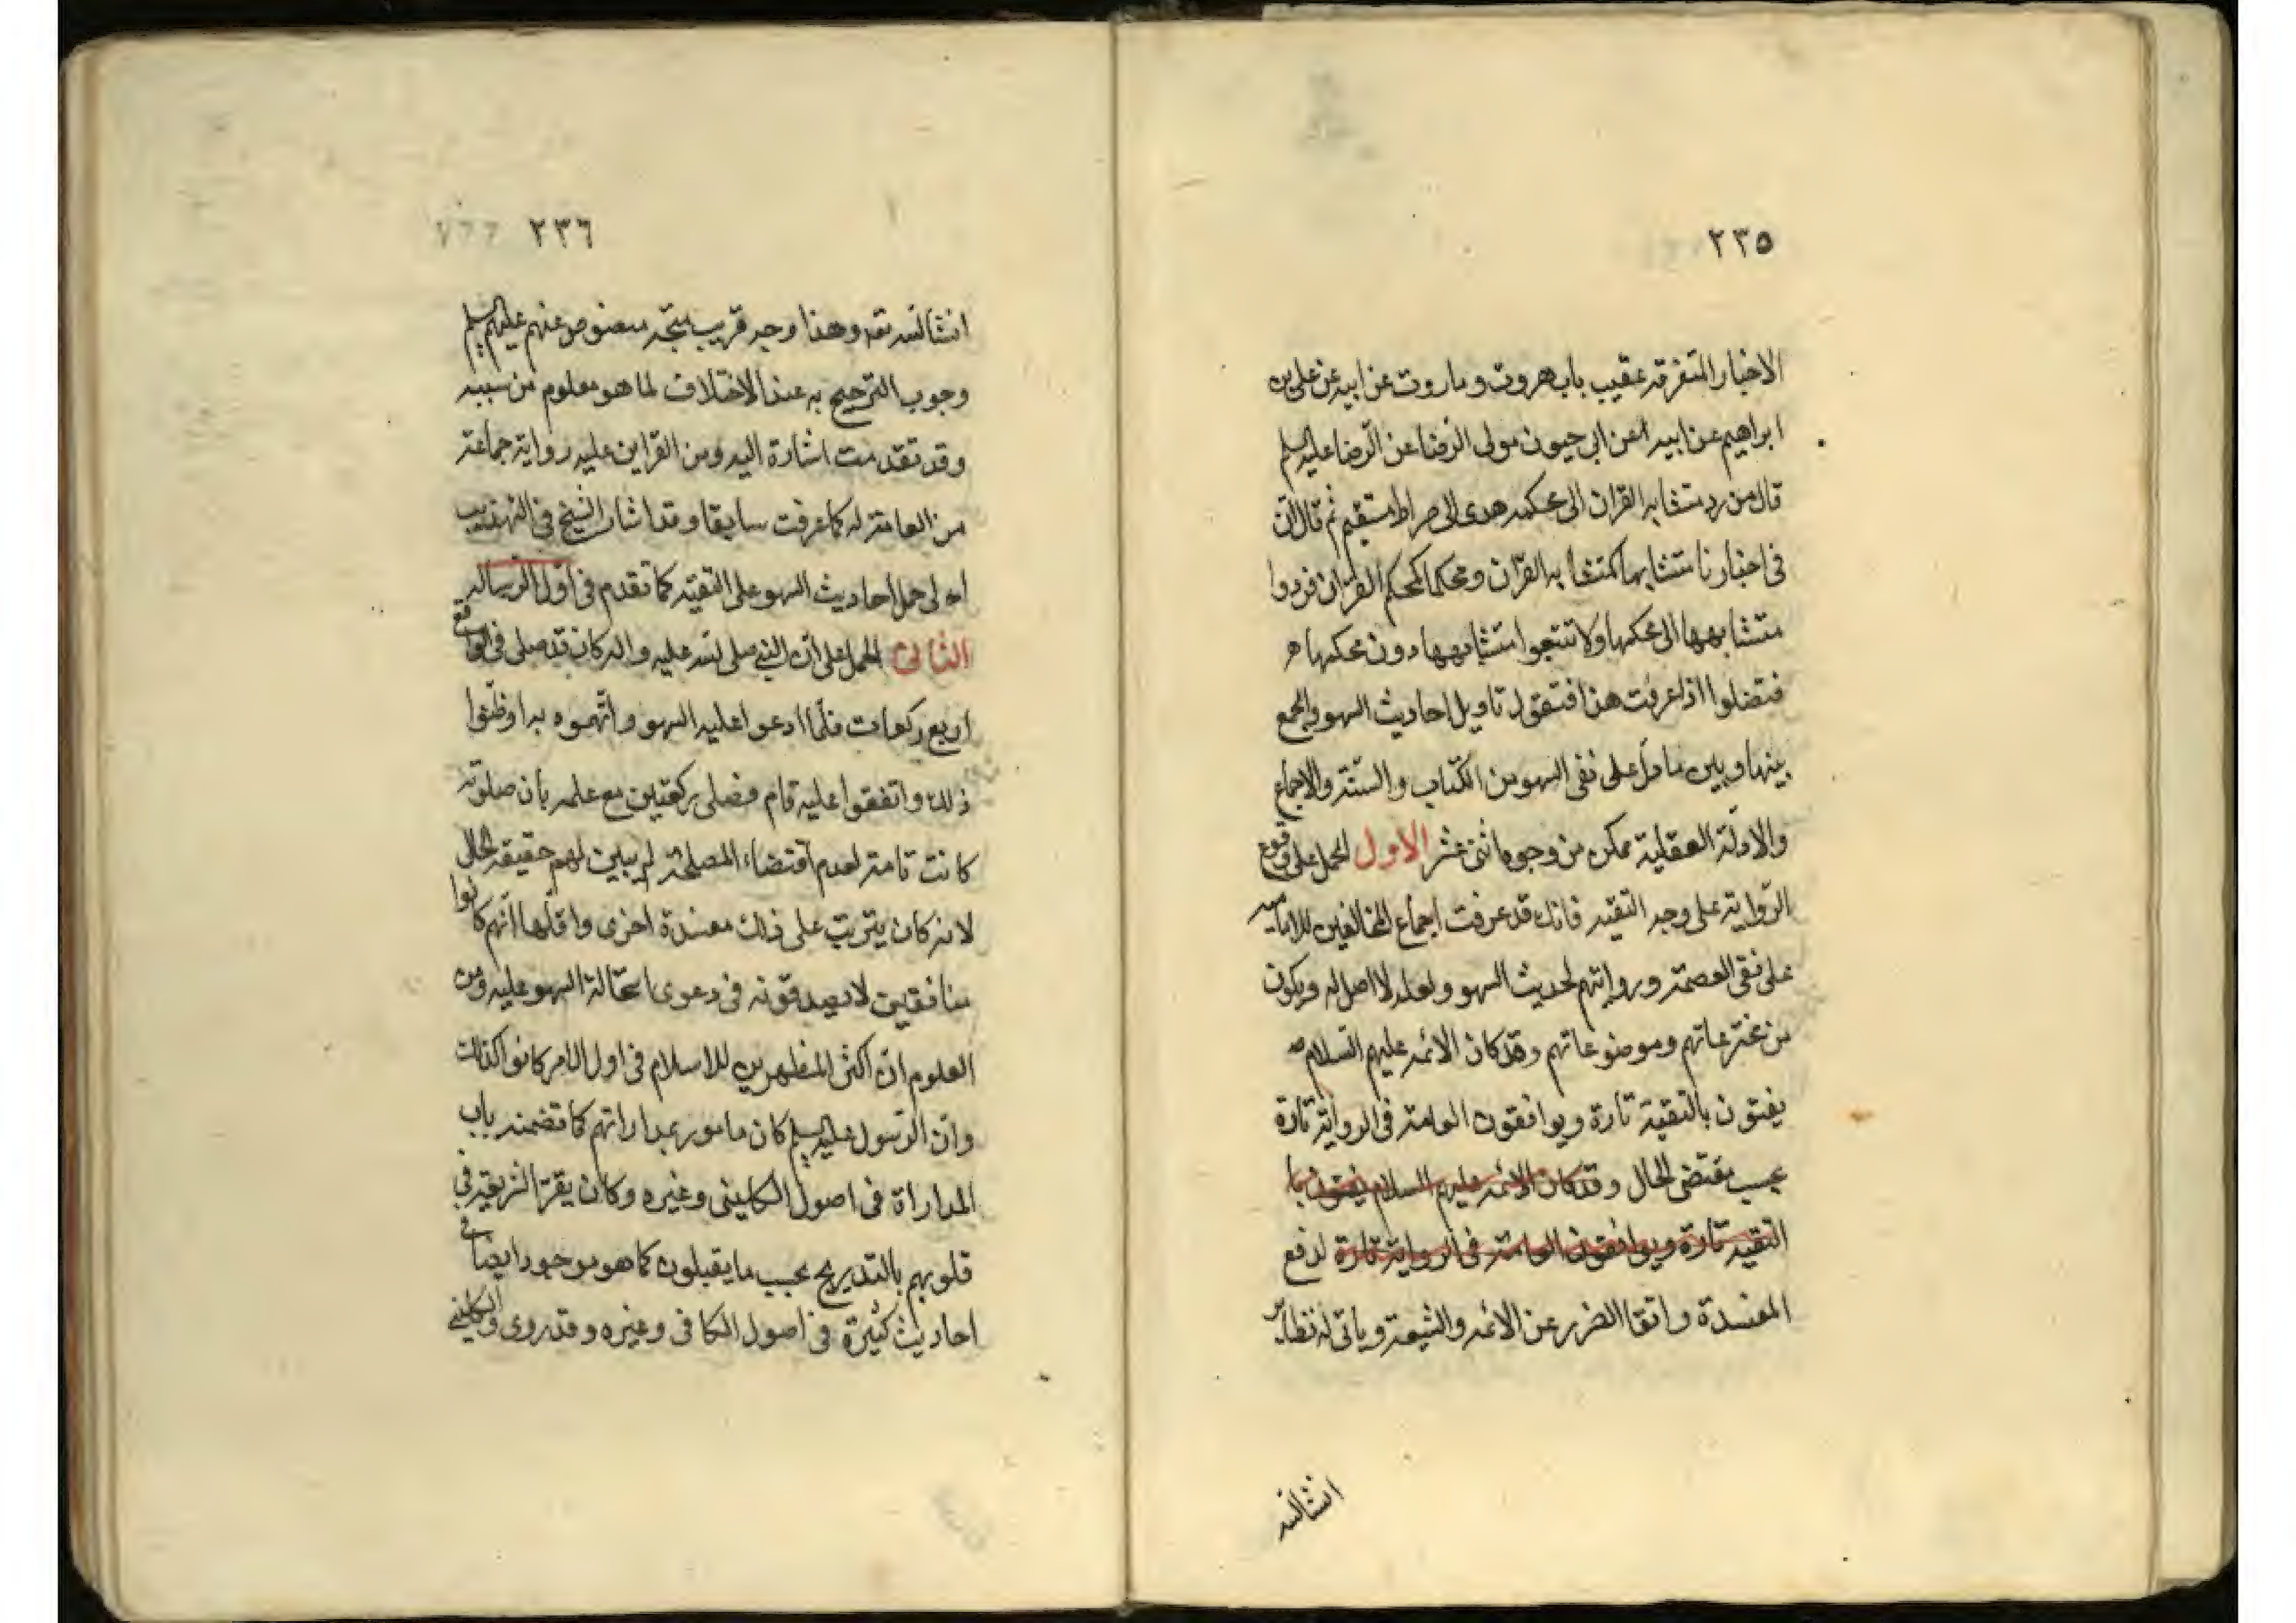 ٢٣٥
الاخبار المتفرقة عقيب باب هروت وماروت عن ابيه عن علي بن
ابراهيم عن ابيه عن ابي حيون مولى الرضا عن الرضا عليه السلم
قال من رد متشابه القران الى محكمه هدى الى صراط مستقيم ثم قال ان
في اخبارنا متشابها كمتشابه القران ومحكما كمحكم القران فردوا
متشابهها الى محكمها ولا تتبعوا متشابهها دون محكمها
فتضلوا اذا عرفت هذا فنقول تاويل احاديث السهو والجمع
بينها وبين ما دل على نفى السهو من الكتاب والسنة والاجماع
والادلة العقلية ممكن من وجوه اثنى عشر الاول الحمل على وقوع
الرواية على وجه التقيه فانك قد عرفت اجماع المخالفين للاماميه
على نفى العصمة وروايتهم لحديث السهو ولعله لا اصل له ويكون
من مخترعاتهم وموضوعاتهم وقد كان الائمه عليهم السلام
يفتون بالتقية تارة ويوافقون العامة في الرواية تارة
بحسب مقتضى الحال وقد كان الائمه عليهم السلام يفتون بما
التقيه تارة ويوافقون العامة في الرواية تارة لدفع
المفسدة واتقا الضرر عن الائمه والشيعة وياتى له نظاير
انشالله
٢٣٦
انشالله تعه وهذا وجه قريب متجه منصوص عنهم عليهم السلم
وجوب الترجيح به عند الاختلاف لما هو معلوم من سببه
وقد تقدمت اشارة اليه ومن القراين عليه رواية جماعة
من العامة له كما عرفت سابقا وقد اشار الشيخ في التهذيب
الى حمل احاديث السهو على التقيه كما تقدم في اول الرساله
الثانى الحمل على ان النبي صلى الله عليه واله كان قد صلى في الواقع
اربع ركعات فلما ادعوا عليه السهو واتهموه به اوظنوا
ذلك واتفقوا عليه قام فصلى ركعتين مع علمه بان صلوته
كانت تامة لعدم اقتضاء المصلحة لم يبين لهم حقيقة الحال
لانه كان يترتب على ذلك مفسدة اخرى واقلها انهم كانوا
منافقين لا يصدقونه في دعوى استحالة السهو عليه ومن
المعلوم ان اكثر المظهرين للاسلام في اول الامر كانوا كذلك
وان الرسول عليه السلم كان مامور بمداراتهم كما تضمنه باب
المداراة في اصول الكلينى وغيره وكان يقر الشريعه في
قلوبهم بالتدريج بحسب ما يقبلون كما هو موجود ايضا في
احاديث كثيرة في اصول الكافى وغيره وقد روى الكليني